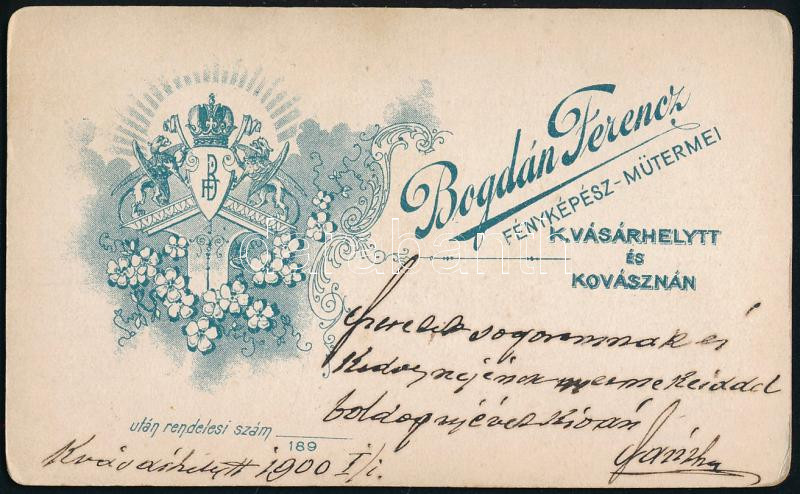 Bogdán Ferencz
FÉNYKÉPÉSZ-MŰTERMEI
K.VÁSÁRHELYTT
ÉS
KOVÁSZNÁN
BF
darabanth
Szeretett sogoromnak és
Kedves nejének
boldog ujévet kiván
után rendelesi szám
189
Kvásárhelytt 1900 I/1.